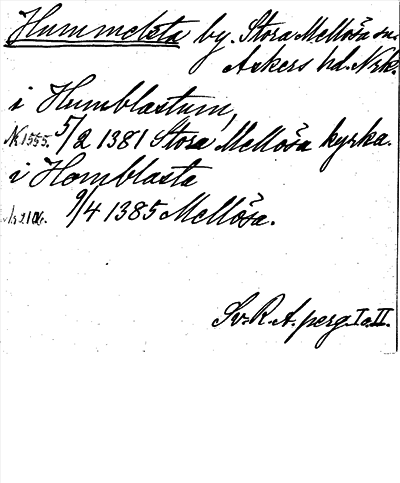 Hummelsta by. Stora Mellösa sn.
Askers hd. Nrk.
i Humblastum,
№ 1555. 5/2 1381 Stora Mellösa kyrka.
i Homblasta
№ 2106. 9/4 1385 Mellösa.
Sv. R. A. perg. I o. II.